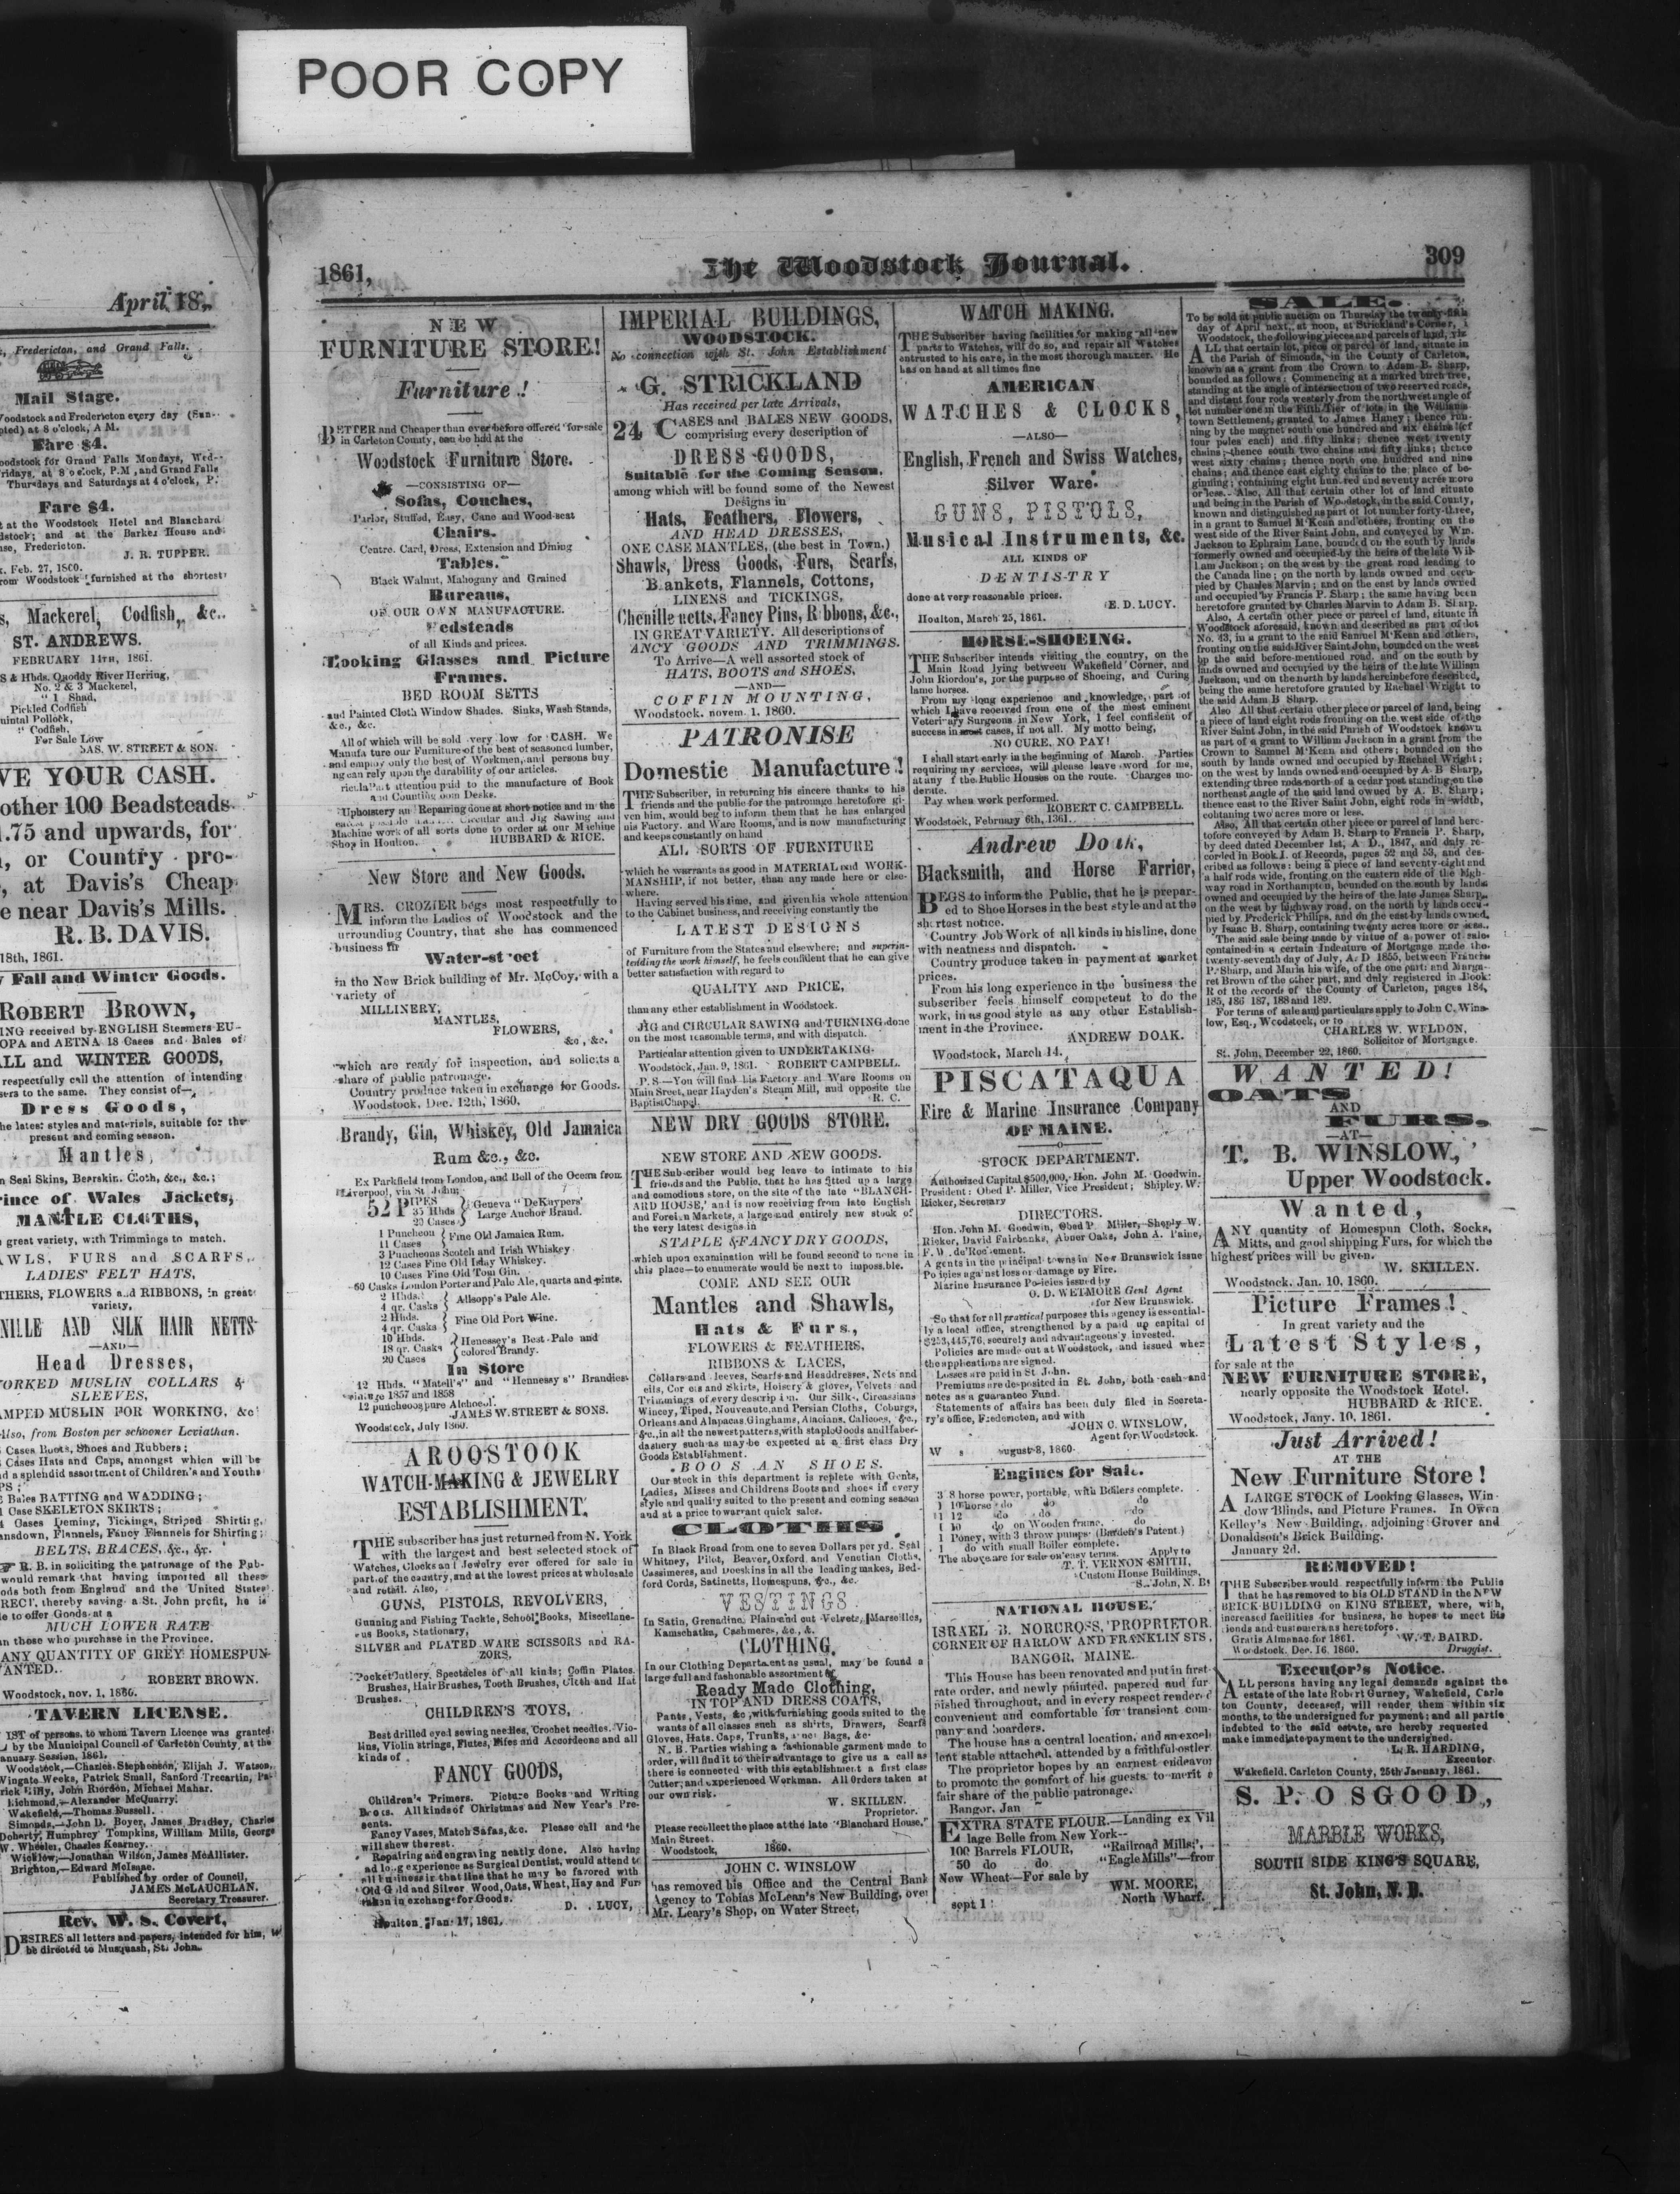 POOR COPY
April 18,
, Fredericton, and Grand Falls.
Mail Stage.
Woodstock and Fredericton every day (Sun-
pted) at 8 o'clock, A M.
Fare $4.
oodstock for Grand Falls Mondays, Wed-
ridays, at 8 o'clock, P.M., and Grand Falls
Thursdays and Saturdays at 4 o'clock, P.
Fare $4.
at the Woodstock Hotel and Blanchard
dstock; and at the Barker House and
use, Fredericton.
J. R. TUPPER.
Feb. 27, 1860.
rom Woodstock furnished at the shortest
s, Mackerel, Codfish, &c..
ST. ANDREWS.
FEBRUARY 14TH, 1861.
S & Hbds. Quoddy River Herring,
No. 2 & 3 Mackerel,
" 1 Shad,
Pickled Codfish
uintal Pollock,
" Codfish.
For Sale Low
JAS. W. STREET & SON.
VE YOUR CASH.
other 100 Beadsteads
.75 and upwards, for
, or Country pro-
, at Davis's Cheap
e near Davis's Mills.
R. B. DAVIS.
18th, 1861.
Fall and Winter Goods.
ROBERT BROWN,
ING received by ENGLISH Steamers EU-
OPA and AETNA 18 Cases and Bales of
ALL and WINTER GOODS,
respectfully call the attention of intending
sers to the same. They consist of—
Dress Goods,
he latest styles and materials, suitable for the
present and coming season.
Mantles,
n Seal Skins, Bearskin, Cloth, &c., &c.;
rince of Wales Jackets,
MANTLE CLOTHS,
great variety, with Trimmings to match.
AWLS, FURS and SCARFS,
LADIES' FELT HATS,
THERS, FLOWERS and RIBBONS, in great
variety,
NILLE AND SILK HAIR NETTS
—AND—
Head Dresses,
WORKED MUSLIN COLLARS &
SLEEVES,
AMPED MUSLIN FOR WORKING, &c
Also, from Boston per schooner Leviathan.
Cases Boots, Shoes and Rubbers;
Cases Hats and Caps, amongst which will be
nd a splendid assortment of Children's and Youths
PS;
Bales BATTING and WADDING;
Case SKELETON SKIRTS;
Cases Deming, Tickings, Striped Shirting,
ansdown, Flannels, Fancy Flannels for Shirting;
BELTS, BRACES, &c., &c.
R. B. in soliciting the patronage of the Pub-
would remark that having imported all these
ods both from England and the United States
RECT, thereby saving a St. John profit, he is
le to offer Goods at a
MUCH LOWER RATE
an those who purchase in the Province.
ANY QUANTITY OF GREY HOMESPUN
WANTED.
ROBERT BROWN.
Woodstock, nov. 1, 1860.
TAVERN LICENSE.
LIST of persons, to whom Tavern Licence was granted
by the Municipal Council of Carleton County, at the
anuary Session, 1861.
Woodstock,—Charles Stephenson, Elijah J. Watson,
Wingate Weeks, Patrick Small, Sanford Trecartin, Pa-
rick Riffy, John Riordon, Michael Mahar.
Richmond,—Alexander McQuarry.
Wakefield,—Thomas Russell.
Simonds,—John D. Boyer, James Bradley, Charles
Doherty, Humphrey Tompkins, William Mills, George
W. Wheeler, Charles Kearney.
Wicklow,—Jonathan Wilson, James McAllister.
Brighton,—Edward McIsaac.
Published by order of Council,
JAMES McLAUCHLAN,
Secretary Treasurer.
Rev. W. S. Covert,
DESIRES all letters and papers, intended for him, to
be directed to Musquash, St. John.
1861,
The Woodstock Journal.
309
NEW
FURNITURE STORE!
Furniture!
BETTER and Cheaper than ever before offered for sale
in Carleton County, can be had at the
Woodstock Furniture Store.
—CONSISTING OF—
Sofas, Couches,
Parlor, Stuffed, Easy, Cane and Wood-seat
Chairs.
Centre, Card, Dress, Extension and Dining
Tables.
Black Walnut, Mahogany and Grained
Bureaus,
OF OUR OWN MANUFACTURE.
edsteads
of all Kinds and prices.
Looking Glasses and Picture
Frames.
BED ROOM SETTS
and Painted Cloth Window Shades. Sinks, Wash Stands,
&c., &c.
All of which will be sold very low for CASH. We
Manufa ture our Furniture of the best of seasoned lumber,
and employ only the best of Workmen, and persons buy
ing can rely upon the durability of our articles.
attention paid to the manufacture of Book
and Counting oom Desks.
Upholstery and Repairing done at short notice and in the
Circular and Jig Sawing and
Machine work of all sorts done to order at our Machine
Shop in Houlton. HUBBARD & RICE.
New Store and New Goods.
MRS. CROZIER begs most respectfully to
inform the Ladies of Woodstock and the
urrounding Country, that she has commenced
business in
Water-st eet
in the New Brick building of Mr. McCoy, with a
variety of
MILLINERY,
MANTLES,
FLOWERS,
&c, &c.
which are ready for inspection, and solicits a
share of public patronage.
Country produce taken in exchange for Goods.
Woodstock, Dec. 12th, 1860.
Brandy, Gin, Whiskey, Old Jamaica
Rum &c., &c.
Ex Parkfield from London, and Bell of the Ocean from
Liverpool, via St John
52 PIPES
35 Hhds
20 Cases
Geneva "DeKuypers'
Large Anchor Brand.
1 Puncheon
11 Cases
Fine Old Jamaica Rum.
3 Puncheons Scotch and Irish Whiskey
12 Cases Fine Old Islay Whiskey.
10 Cases Fine Old Tom Gin.
60 Casks London Porter and Pale Ale, quarts and pints.
2 Hhds.
4 qr. Casks
Allsopp's Pale Ale.
2 Hhds.
4 qr. Casks
Fine Old Port Wine.
10 Hhds.
18 qr. Casks
20 Cases
Henessey's Best Pale and
colored Brandy.
In Store
12 Hhds. "Matell's" and "Hennessy s" Brandies
vintage 1857 and 1858
12 puncheons pure Alchool.
JAMES W. STREET & SONS.
Woodstock, July 1860.
AROOSTOOK
WATCH-MAKING & JEWELRY
ESTABLISHMENT.
THE subscriber has just returned from N. York
with the largest and best selected stock of
Watches, Clocks and Jewelry ever offered for sale in
part of the country, and at the lowest prices at wholesale
and retail. Also,
GUNS, PISTOLS, REVOLVERS,
Gunning and Fishing Tackle, School Books, Miscellane-
us Books, Stationary,
SILVER and PLATED WARE SCISSORS and RA-
ZORS,
Pocket Cutlery, Spectacles of all kinds; Coffin Plates.
Brushes, Hair Brushes, Tooth Brushes, Cloth and Hat
Brushes.
CHILDREN'S TOYS,
Best drilled eyed sewing needles, Crochet needles. Vio-
lins, Violin strings, Flutes, Fifes and Accordeons and all
kinds of
FANCY GOODS,
Children's Primers. Picture Books and Writing
Boots. All kinds of Christmas and New Year's Pre-
sents.
Fancy Vases, Match Safes, &c. Please call and he
will shew the rest.
Repairing and engraving neatly done. Also having
ad long experience as Surgical Dentist, would attend to
all business in that line that he may be favored with
Old Gold and Silver Wood, Oats, Wheat, Hay and Furs
taken in exchange for Goods.
D. . LUCY,
Houlton, Jan. 17, 1861.
IMPERIAL BUILDINGS,
WOODSTOCK.
No connection with St. John Establishment
G. STRICKLAND
Has received per late Arrivals,
24 CASES and BALES NEW GOODS,
comprising every description of
DRESS GOODS,
Suitable for the Coming Season.
among which will be found some of the Newest
Designs in
Hats, Feathers, Flowers,
AND HEAD DRESSES,
ONE CASE MANTLES, (the best in Town.)
Shawls, Dress Goods, Furs, Scarfs,
Blankets, Flannels, Cottons,
LINENS and TICKINGS,
Chenille netts, Fancy Pins, Ribbons, &c.,
IN GREAT VARIETY. All descriptions of
ANCY GOODS AND TRIMMINGS.
To Arrive—A well assorted stock of
HATS, BOOTS and SHOES,
—AND—
COFFIN MOUNTING,
Woodstock. novem. 1. 1860.
PATRONISE
Domestic Manufacture!
THE Subscriber, in returning his sincere thanks to his
friends and the public for the patronage heretofore gi-
ven him, would beg to inform them that he has enlarged
his Factory, and Ware Rooms, and is now manufacturing
and keeps constantly on hand
ALL SORTS OF FURNITURE
which he warrants as good in MATERIAL and WORK-
MANSHIP, if not better, than any made here or else-
where.
Having served his time, and given his whole attention
to the Cabinet business, and receiving constantly the
LATEST DESIGNS
of Furniture from the States and elsewhere; and superin-
tending the work himself, he feels confident that he can give
better satisfaction with regard to
QUALITY AND PRICE,
than any other establishment in Woodstock.
JIG and CIRCULAR SAWING and TURNING done
on the most reasonable terms, and with dispatch.
Particular attention given to UNDERTAKING.
Woodstock, Jan. 9, 1861. ROBERT CAMPBELL.
P. S—You will find his Factory and Ware Rooms on
Main Sreet, near Hayden's Steam Mill, and opposite the
Baptist Chapel. R. C.
NEW DRY GOODS STORE.
NEW STORE AND NEW GOODS.
THE Subscriber would beg leave to intimate to his
friends and the Public, that he has fitted up a large
and comodious store, on the site of the late "BLANCH-
ARD HOUSE,' and is now receiving from late English
and Foreign Markets, a large and entirely new stock of
the very latest designs in
STAPLE & FANCY DRY GOODS,
which upon examination will be found second to none in
this place—to enumerate would be next to imposs.ble.
COME AND SEE OUR
Mantles and Shawls,
Hats & Furs,
FLOWERS & FEATHERS,
RIBBONS & LACES,
Collars and leeves, Scarfs and Headdresses, Nets and
eils, Cor ets and Skirts, Hoisery & gloves, Velvets and
Trimmings of every descrip i n. Our Silk-, Circassians
Wincey, Tiped, Nouveauto, and Persian Cloths, Coburgs,
Orleans and Alapacas, Ginghams, Alacians, Calicoes, &c.,
&c., in all the newest patterns, with staple Goods and Haber-
dashery such as may be expected at a first class Dry
Goods Establishment.
BOO S AN SHOES.
Our stock in this department is replete with Gents,
Ladies, Misses and Childrens Boots and shoes in every
style and quality suited to the present and coming season
and at a price to warrant quick sales.
CLOTHS
In Black Broad from one to seven Dollars per yd. Seal
Whitney, Pilot, Beaver, Oxford, and Venetian Cloths,
Cassimeres, and Doeskins in all the leading makes, Bed-
ford Cords, Satinetts, Homespuns, &c., &c.
VESTINGS
In Satin, Grenadine, Plain and cut Velvets, Marseilles,
Kamschatka, Cashmere, &c., &.
CLOTHING.
In our Clothing Department as usual, may be found a
large full and fashonable assortment of
Ready Made Clothing,
IN TOP AND DRESS COATS,
Pants, Vests, &c, with furnishing goods suited to the
wants of all classes such as shirts, Drawers, Scarfs
Gloves, Hats. Caps, Trunks, Bags, &c.
N. B. Parties wishing a fashionable garment made to
order, will find it to their advantage to give us a call as
there is connected with this establishment a first class
Cutter; and experienced Workman. All Orders taken at
our own risk.
W. SKILLEN.
Proprietor.
Please recollect the place at the late "Blanchard House,"
Main Street.
Woodstock, 1860.
JOHN C. WINSLOW
has removed his Office and the Central Bank
Agency to Tobias McLean's New Building, over
Mr. Leary's Shop, on Water Street,
WATCH MAKING.
THE Subscriber having facilities for making all new
parts to Watches, will do so, and repair all Watches
entrusted to his care, in the most thorough manner. He
has on hand at all times fine
AMERICAN
WATCHES & CLOCKS,
—ALSO—
English, French and Swiss Watches,
Silver Ware.
GUNS, PISTOLS,
Musical Instruments, &c.
ALL KINDS OF
DENTISTRY
done at very reasonable prices.
E. D. LUCY.
Houlton, March 25, 1861.
HORSE-SHOEING.
THE Subscriber intends visiting the country, on the
Main Road lying between Wakefield Corner, and
John Riordon's, for the purpose of Shoeing, and Curing
lame horses.
From my long experience and knowledge, part of
which I have received from one of the most eminent
Veterinary Surgeons in New York, I feel confident of
success in most cases, if not all. My motto being,
NO CURE, NO PAY!
I shall start early in the beginning of March. Parties
requiring my services, will please leave word for me,
at any f the Public Houses on the route. Charges mo-
derate.
Pay when work performed.
ROBERT C. CAMPBELL.
Woodstock, February 6th, 1861.
Andrew Doak,
Blacksmith, and Horse Farrier,
BEGS to inform the Public, that he is prepar-
ed to Shoe Horses in the best style and at the
shortest notice.
Country Job Work of all kinds in his line, done
with neatness and dispatch.
Country produce taken in payment at market
prices.
From his long experience in the business the
subscriber feels himself competent to do the
work, in as good style as any other Establish-
ment in the Province.
ANDREW DOAK.
Woodstock, March 14.
PISCATAQUA
Fire & Marine Insurance Company
OF MAINE.
STOCK DEPARTMENT.
Authorized Capital $500,000, Hon. John M. Goodwin,
President: Obed P. Miller, Vice President; Shipley W.
Ricker, Secretary
DIRECTORS.
Hon. John M. Goodwin, Obed P. Miller, Sheply W.
Ricker, David Fairbanks, Abner Oaks, John A. Paine,
F. W. de Roc ement.
Agents in the principal towns in New Brunswick issue
Policies against loss or damage by Fire.
Marine Insurance Policies issued by
O. D. WETMORE Genl Agent
for New Brunswick.
So that for all practical purposes this agency is essential-
ly a local office, strengthened by a paid up capital of
$253,445,76, securely and advantageous'y invested.
Policies are made out at Woodstock, and issued when
the applications are signed.
Losses are paid in St John.
Premiums are deposited in St. John, both cash and
notes as a guarantee Fund.
Statements of affairs has been duly filed in Secreta-
ry's office, Fredericton, and with
JOHN C. WINSLOW,
Agent for Woodstock.
W , august 8, 1860
Engines for Sale.
3 8 horse power, portable, with Boilers complete.
1 10 horse do do do
1 12 do do do
1 10 do on Wooden frame. do
1 Poney, with 3 throw pumps (Burden's Patent.)
1 do with small Boiler complete.
The above are for sale on easy terms. Apply to
T. T. VERNON SMITH,
Custom House Buildings,
S. John, N. B
NATIONAL HOUSE,
ISRAEL B. NORCROSS, PROPRIETOR
CORNER OF HARLOW AND FRANKLIN STS.
BANGOR, MAINE.
This House has been renovated and put in first
rate order, and newly painted, papered and fur
nished throughout, and in every respect rendered
convenient and comfortable for transient com-
pany and boarders.
The house has a central location, and an excel
lent stable attached, attended by a faithful ostler
The proprietor hopes by an earnest endeavor
to promote the comfort of his guests to merit a
fair share of the public patronage.
Bangor, Jan
EXTRA STATE FLOUR.—Landing ex Vil
lage Belle from New York—
100 Barrels FLOUR, "Railroad Mills",
50 do do. "Eagle Mills"—from
New Wheat—For sale by
WM. MOORE,
North Wharf.
sept 1
SALE.
To be sold at public auction on Thursday the twenty-fifth
day of April next, at noon, at Strickland's Corner, i
Woodstock, the following pieces and parcels of land, viz
ALL that certain lot, piece or parcel of land, situate in
the Parish of Simonds, in the County of Carleton,
known as a grant from the Crown to Adam B. Sharp,
bounded as follows: Commencing at a marked birch tree,
standing at the angle of intersection of two reserved roads,
and distant four rods westerly from the northwest angle of
lot number one in the Fifth Tier of lots in the Williams
town Settlement, granted to James Haney; thence run-
ning by the magnet south one hundred and six chains (of
four poles each) and fifty links; thence west twenty
chains; thence south two chains and fifty links; thence
west sixty chains; thence north one hundred and nine
chains; and thence east eighty chains to the place of be-
ginning; containing eight hundred and seventy acres more
or less. Also, All that certain other lot of land situate
and being in the Parish of Woodstock, in the said County,
known and distinguished as part of lot number forty-three,
in a grant to Samuel M'Kean and others, fronting on the
west side of the River Saint John, and conveyed by Wm.
Jackson to Ephraim Lane, bounded on the south by lands
formerly owned and occupied by the heirs of the late Wil-
liam Jackson; on the west by the great road leading to
the Canada line; on the north by lands owned and occu-
pied by Charles Marvin; and on the east by lands owned
and occupied by Francis P. Sharp; the same having been
heretofore granted by Charles Marvin to Adam B. Sharp.
Also, A certain other piece or parcel of land, situate in
Woodstock aforesaid, known and described as part of lot
No. 43, in a grant to the said Samuel M'Kean and others,
fronting on the said River Saint John, bounded on the west
by the said before-mentioned road, and on the south by
lands owned and occupied by the heirs of the late William
Jackson, and on the north by lands hereinbefore described,
being the same heretofore granted by Rachael Wright to
the said Adam B Sharp.
Also All that certain other piece or parcel of land, being
a piece of land eight rods fronting on the west side of the
River Saint John, in the said Parish of Woodstock known
as part of a grant to William Jackson in a grant from the
Crown to Samuel M'Kean and others; bounded on the
south by lands owned and occupied by Rachael Wright;
on the west by lands owned and occupied by A. B Sharp,
extending three rods north of a cedar post standing on the
northeast angle of the said land owned by A. B. Sharp;
thence east to the River Saint John, eight rods in width,
containing two acres more or less.
Also, All that certain other piece or parcel of land here-
tofore conveyed by Adam B. Sharp to Francis P. Sharp,
by deed dated December 1st, A. D., 1847, and duly re-
corded in Book I. of Records, pages 52 and 53, and des-
cribed as follows: being a piece of land seventy-eight and
a half rods wide, fronting on the eastern side of the high-
way road in Northampton, bounded on the south by lands
owned and occupied by the heirs of the late James Sharp,
on the west by highway road, on the north by lands occu-
pied by Frederick Philips, and on the east by lands owned
by Isaac B. Sharp, containing twenty acres more or less.
The said sale being made by virtue of a power of sale
contained in a certain Indenture of Mortgage made the
twenty-seventh day of July, A. D 1855, between Francis
P. Sharp, and Maria his wife, of the one part; and Marga-
ret Brown of the other part, and duly registered in Book
R of the records of the County of Carleton, pages 184,
185, 186 187, 188 and 189.
For terms of sale and particulars apply to John C. Wins-
low, Esq., Woodstock, or to
CHARLES W. WELDON,
Solicitor of Mortgagee.
St. John, December 22, 1860.
WANTED!
OATS
AND
FURS.
—AT—
T. B. WINSLOW,
Upper Woodstock.
Wanted,
ANY quantity of Homespun Cloth, Socks,
Mitts, and good shipping Furs, for which the
highest prices will be given.
W. SKILLEN.
Woodstock. Jan. 10, 1860.
Picture Frames!
In great variety and the
Latest Styles,
for sale at the
NEW FURNITURE STORE,
nearly opposite the Woodstock Hotel.
HUBBARD & RICE.
Woodstock, Jany. 10, 1861.
Just Arrived!
AT THE
New Furniture Store!
A LARGE STOCK of Looking Glasses, Win-
dow Blinds, and Picture Frames. In Owen
Kelley's New Building, adjoining Grover and
Donaldson's Brick Building.
January 2d.
REMOVED!
THE Subscriber would respectfully inform the Public
that he has removed to his OLD STAND in the NEW
BRICK BUILDING on KING STREET, where, with,
increased facilities for business, he hopes to meet his
iends and customers as heretofore.
Gratis Almanac for 1861. W. T. BAIRD.
Woodstock, Dec. 16, 1860. Druggist.
Executor's Notice.
ALL persons having any legal demands against the
estate of the late Robert Gurney, Wakefield, Carle
ton County, deceased, will render them within six
months, to the undersigned for payment; and all partie
indebted to the said estate, are hereby requested
make immediate payment to the undersigned.
L. R. HARDING,
Executor
Wakefield, Carleton County, 25th January, 1861.
S. P. OSGOOD,
MARBLE WORKS,
SOUTH SIDE KING'S SQUARE,
St. John, N. B.